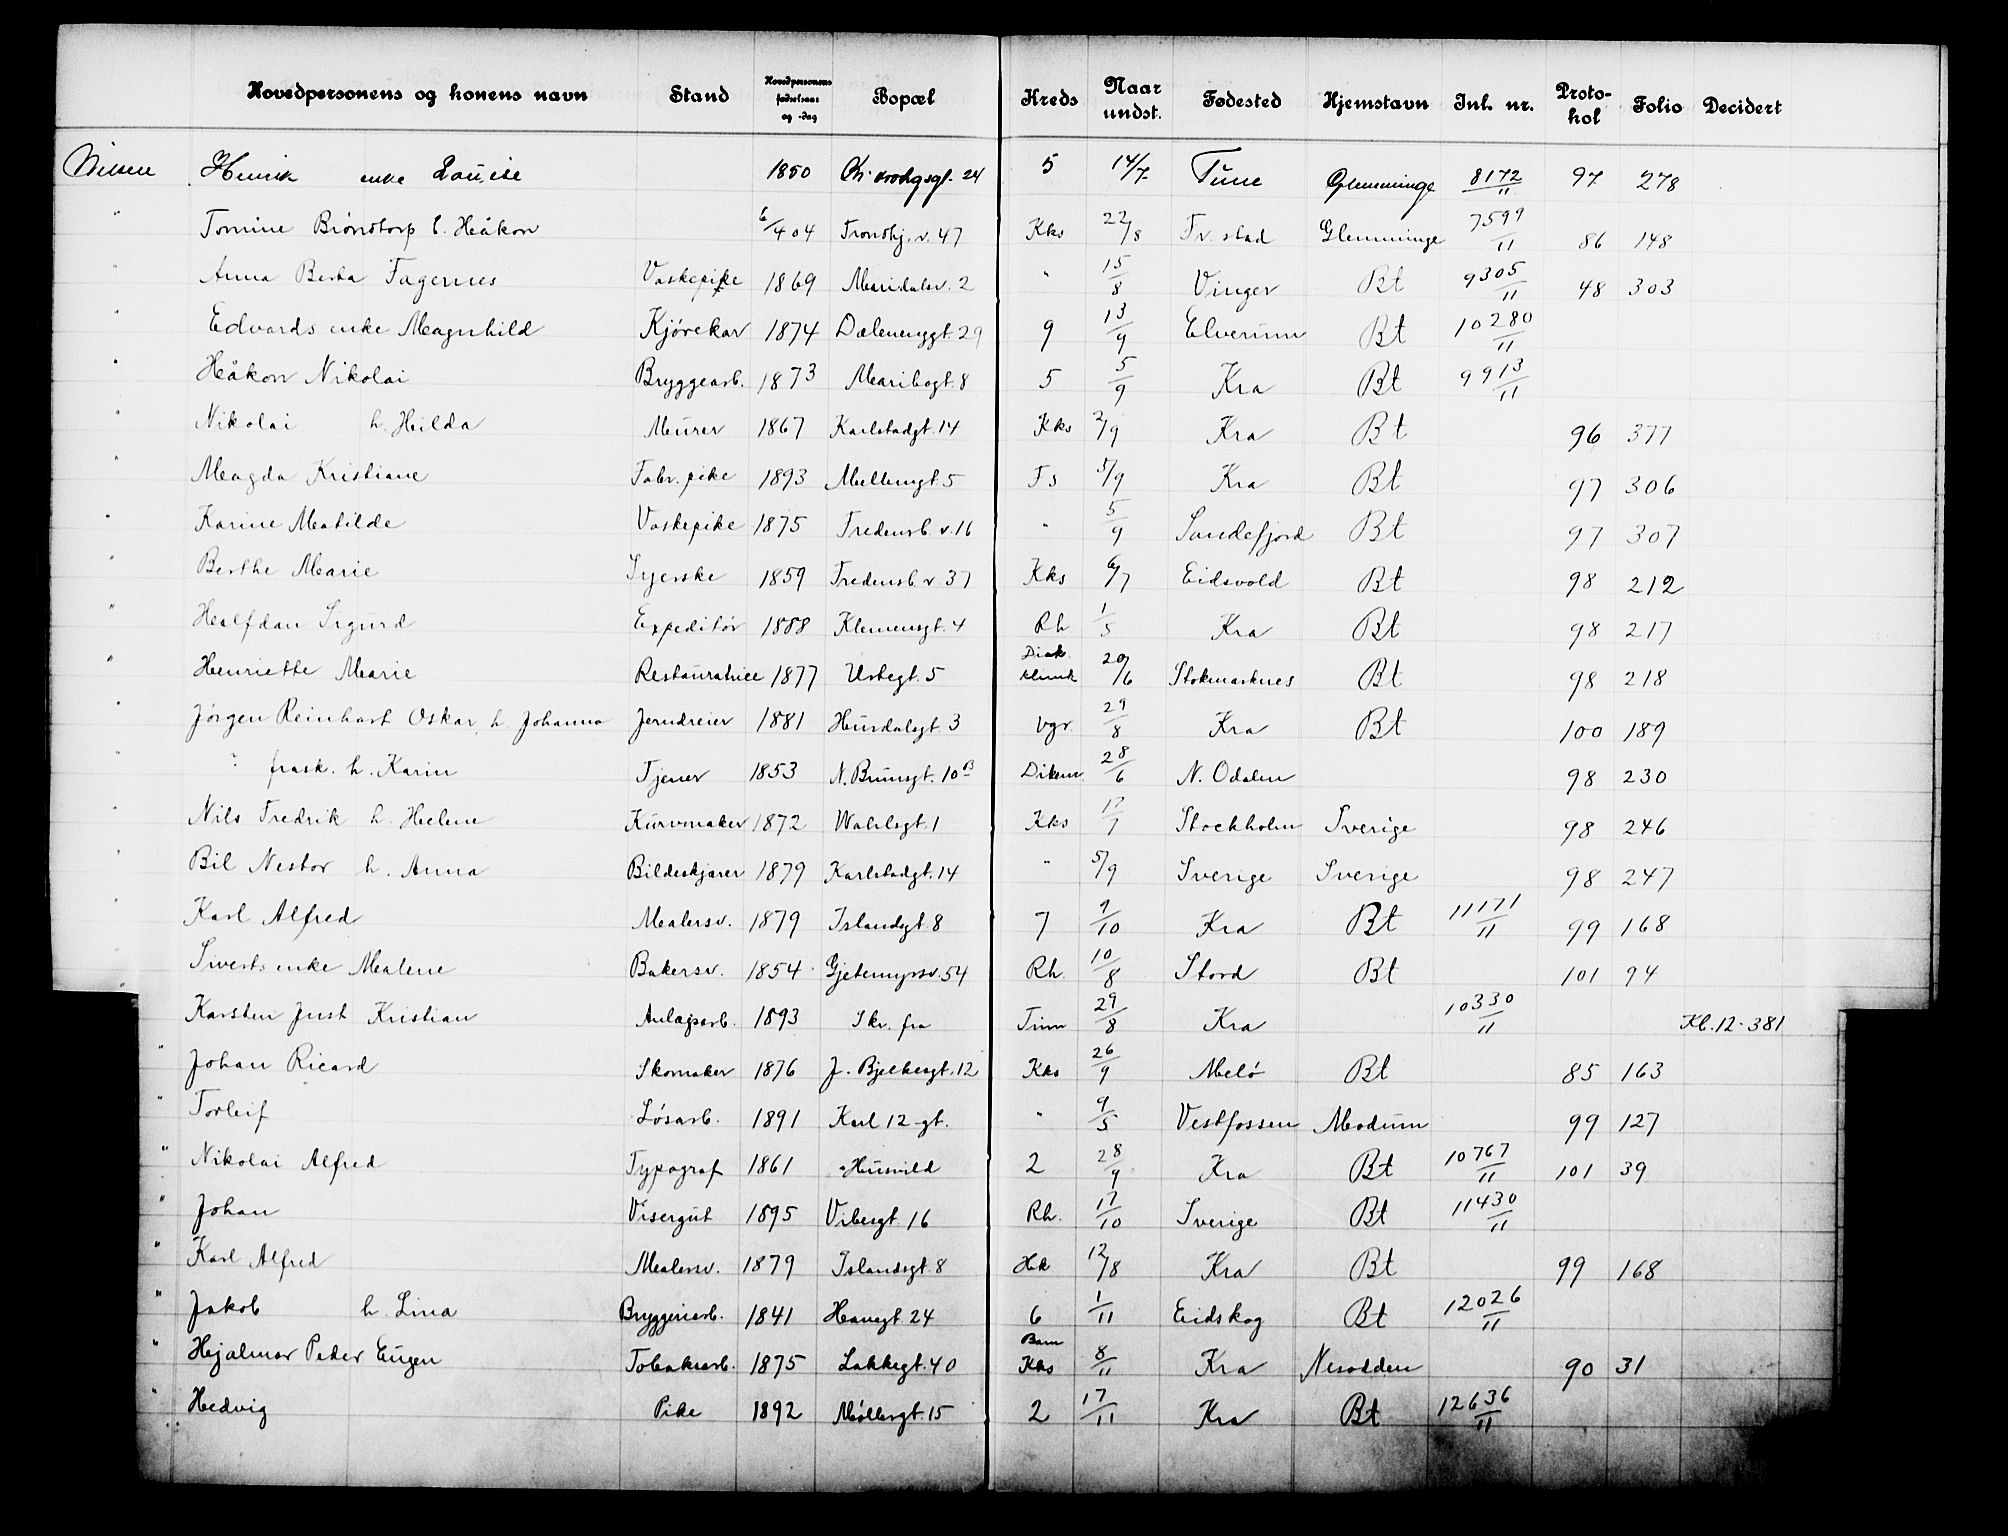 Hovedpersonens og konens navn Stand Hovedpersonens fødselsaar og -dag Bopæl Kreds Naar undst. Fødested Hjemstavn Inl. nr. Proto-kol Folio Decidert
Nilsen Henrik enke Louise 1850 Chr. Kroghsgt. 24 5 14/7 Tune Glemminge 8172/11 97 278
" Tomine Brönstorp f. Håkon 6/4 04 Trondhj. v. 47 Kks 22/8 Fr. stad Glemminge 7599/11 86 148
" Anna Berta Fagernes Vaskepike 1869 Maridalsv. 2 " 15/8 Vinger Bt 9305/11 48 303
" Edvards enke Magnhild Kjörekar 1874 Dælenenggt. 29 9 13/9 Elverum Bt 10280/11
" Håkon Nikolai Bryggearb. 1873 Maribogt. 8 5 5/9 Kra Bt 9913/11
" Nikolai h. Hilda Murer 1867 Karlstadgt. 14 Kks 2/9 Kra Bt 96 377
" Magda Kristiane Fabr. pike 1893 Möllergt. 5 Fs 5/9 Kra Bt 97 306
" Karine Matilde Vaskepike 1875 Fredensb. v. 16 " 5/9 Sandefjord Bt 97 307
" Berthe Marie Syerske 1859 Fredensb. v. 37 Kks 6/7 Eidsvold Bt 98 212
" Halfdan Sigurd Expeditör 1888 Klemensgt. 4 Rh 1/5 Kra Bt 98 217
" Henriette Marie Restauratrice 1877 Urtegt. 5 Diak. klinik 20/6 Stokmarknes Bt 98 218
" Jörgen Reinhart Oskar, h. Johanna Jerndreier 1881 Hurdalsgt. 3 Vgr. 29/8 Kra Bt 100 189
" " frask. h. Karin Tjener 1853 N. Brunsgt. 10 B Dikem. 28/6 N. Odalen 98 230
" Nils Fredrik h. Helene Kurvmaker 1872 Wahlsgt. 1 Kks 17/7 Stockholm Sverige 98 246
" Bil Nestor h. Anna Bildeskjærer 1879 Karlstadgt. 14 " 5/9 Sverige Sverige 98 247
" Karl Alfred Malersv. 1879 Islandsgt. 8 7 9/10 Kra Bt 11171/11 99 168
" Siverts enke Malene Bakersv. 1854 Gjetemyrsv. 54 Rh. 10/8 Stord Bt 101 94
" Karsten Just Kristian Anlægsarb. 1893 Skr. fra Trom 29/8 Kra 10330/11 Kl. 12-381
" Johan Ricard Skomaker 1876 J. Bjelkesgt. 12 Kks 26/9 Melö Bt 85 163
" Torleif Lösarb. 1891 Karl 12 gt. " 9/5 Vestfossen Modum 99 127
" Nikolai Alfred Typograf 1861 Husvild 2 28/9 Kra Bt 10767/11 101 39
" Johan Visergut 1895 Vibesgt. 16 Rh. 17/10 Sverige Bt 11430/11
" Karl Alfred Malersv. 1879 Islandsgt. 8 Hk 12/8 Kra Bt 99 168
" Jakob h. Lina Bryggeriarb. 1841 Havegt. 24 6 1/11 Eidskog Bt 12026/11
" Hjalmar Peder Eugen Tobaksarb. 1875 Lakkegt. 40 Barn Kks 8/11 Kra Nesodden 90 31
" Hedvig Pike 1892 Möllergt. 15 2 17/11 Kra Bt 12636/11